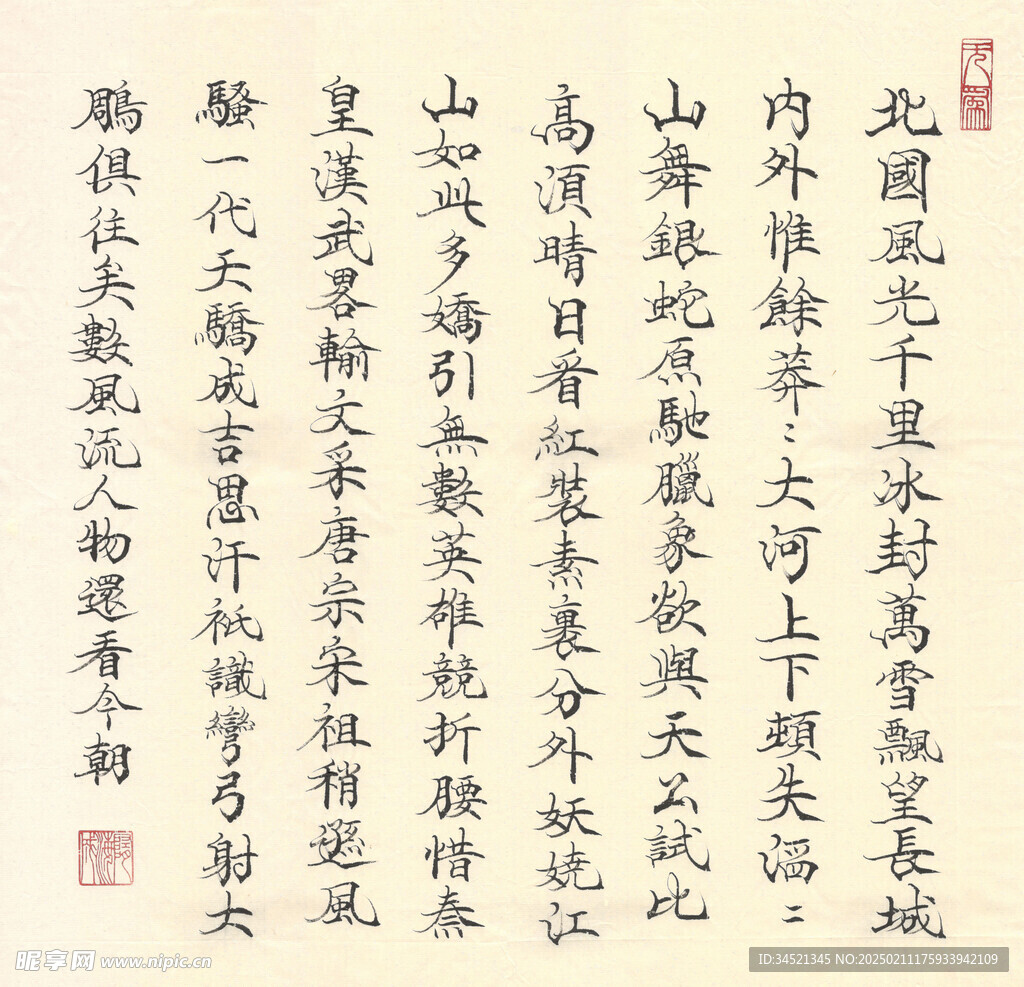 北國風光千里冰封萬雪飄望長城
内外惟餘莽〻大河上下頓失滔〻
山舞銀蛇原馳臘象欲與天公試比
高須晴日看紅裝素裹分外妖嬈江
山如此多嬌引無數英雄競折腰惜秦
皇漢武畧輸文采唐宗宋祖稍遜風
騷一代天驕成吉思汗衹識彎弓射大
鵰俱往矣數風流人物還看今朝
昵享网 www.nipic.cn
ID:34521345 NO:20250211175933942109